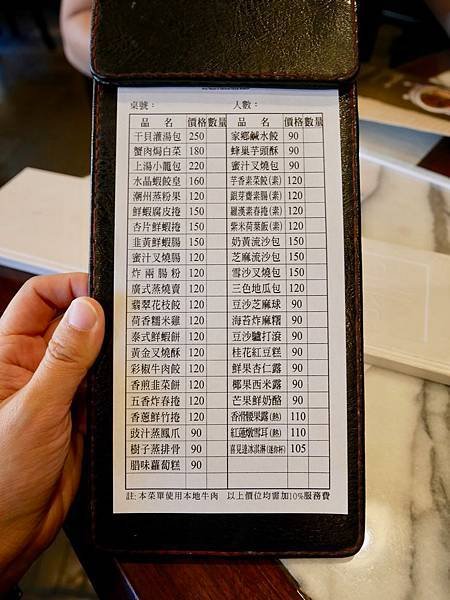 桌號： 人數：
品 名 價格 數量 品 名 價格 數量
干貝灌湯包 250 家鄉鹹水餃 90
蟹肉焗白菜 180 蜂巢芋頭酥 90
上湯小籠包 220 蜜汁叉燒包 90
水晶蝦餃皇 160 芋香素菜餃(素) 120
潮州蒸粉果 120 銀芽齋素腸(素) 120
鮮蝦腐皮捲 150 羅漢素春捲(素) 120
杏片鮮蝦捲 150 紫米荷葉飯(素) 120
韭黃鮮蝦腸 150 奶黃流沙包 150
蜜汁叉燒腸 120 芝麻流沙包 150
炸兩腸粉 120 雪沙叉燒包 150
廣式蒸燒賣 120 三色地瓜包 120
翡翠花枝餃 120 豆沙芝麻球 90
荷香糯米雞 120 海苔炸麻糬 90
泰式鮮蝦餅 120 豆沙驢打滾 90
黃金叉燒酥 120 桂花紅豆糕 90
彩椒牛肉餃 120 鮮果杏仁露 90
香煎韭菜餅 120 椰果西米露 90
五香炸春捲 120 芒果鮮奶酪 90
香蔥鮮竹捲 120 香滑腰果露(熱) 110
豉汁蒸鳳爪 90 紅蓮燉雪耳(熱) 110
樹子蒸排骨 90 喜見達冰淇淋(迷你杯) 105
腊味蘿蔔糕 90
註:本菜單使用本地牛肉 以上價位均需加10%服務費